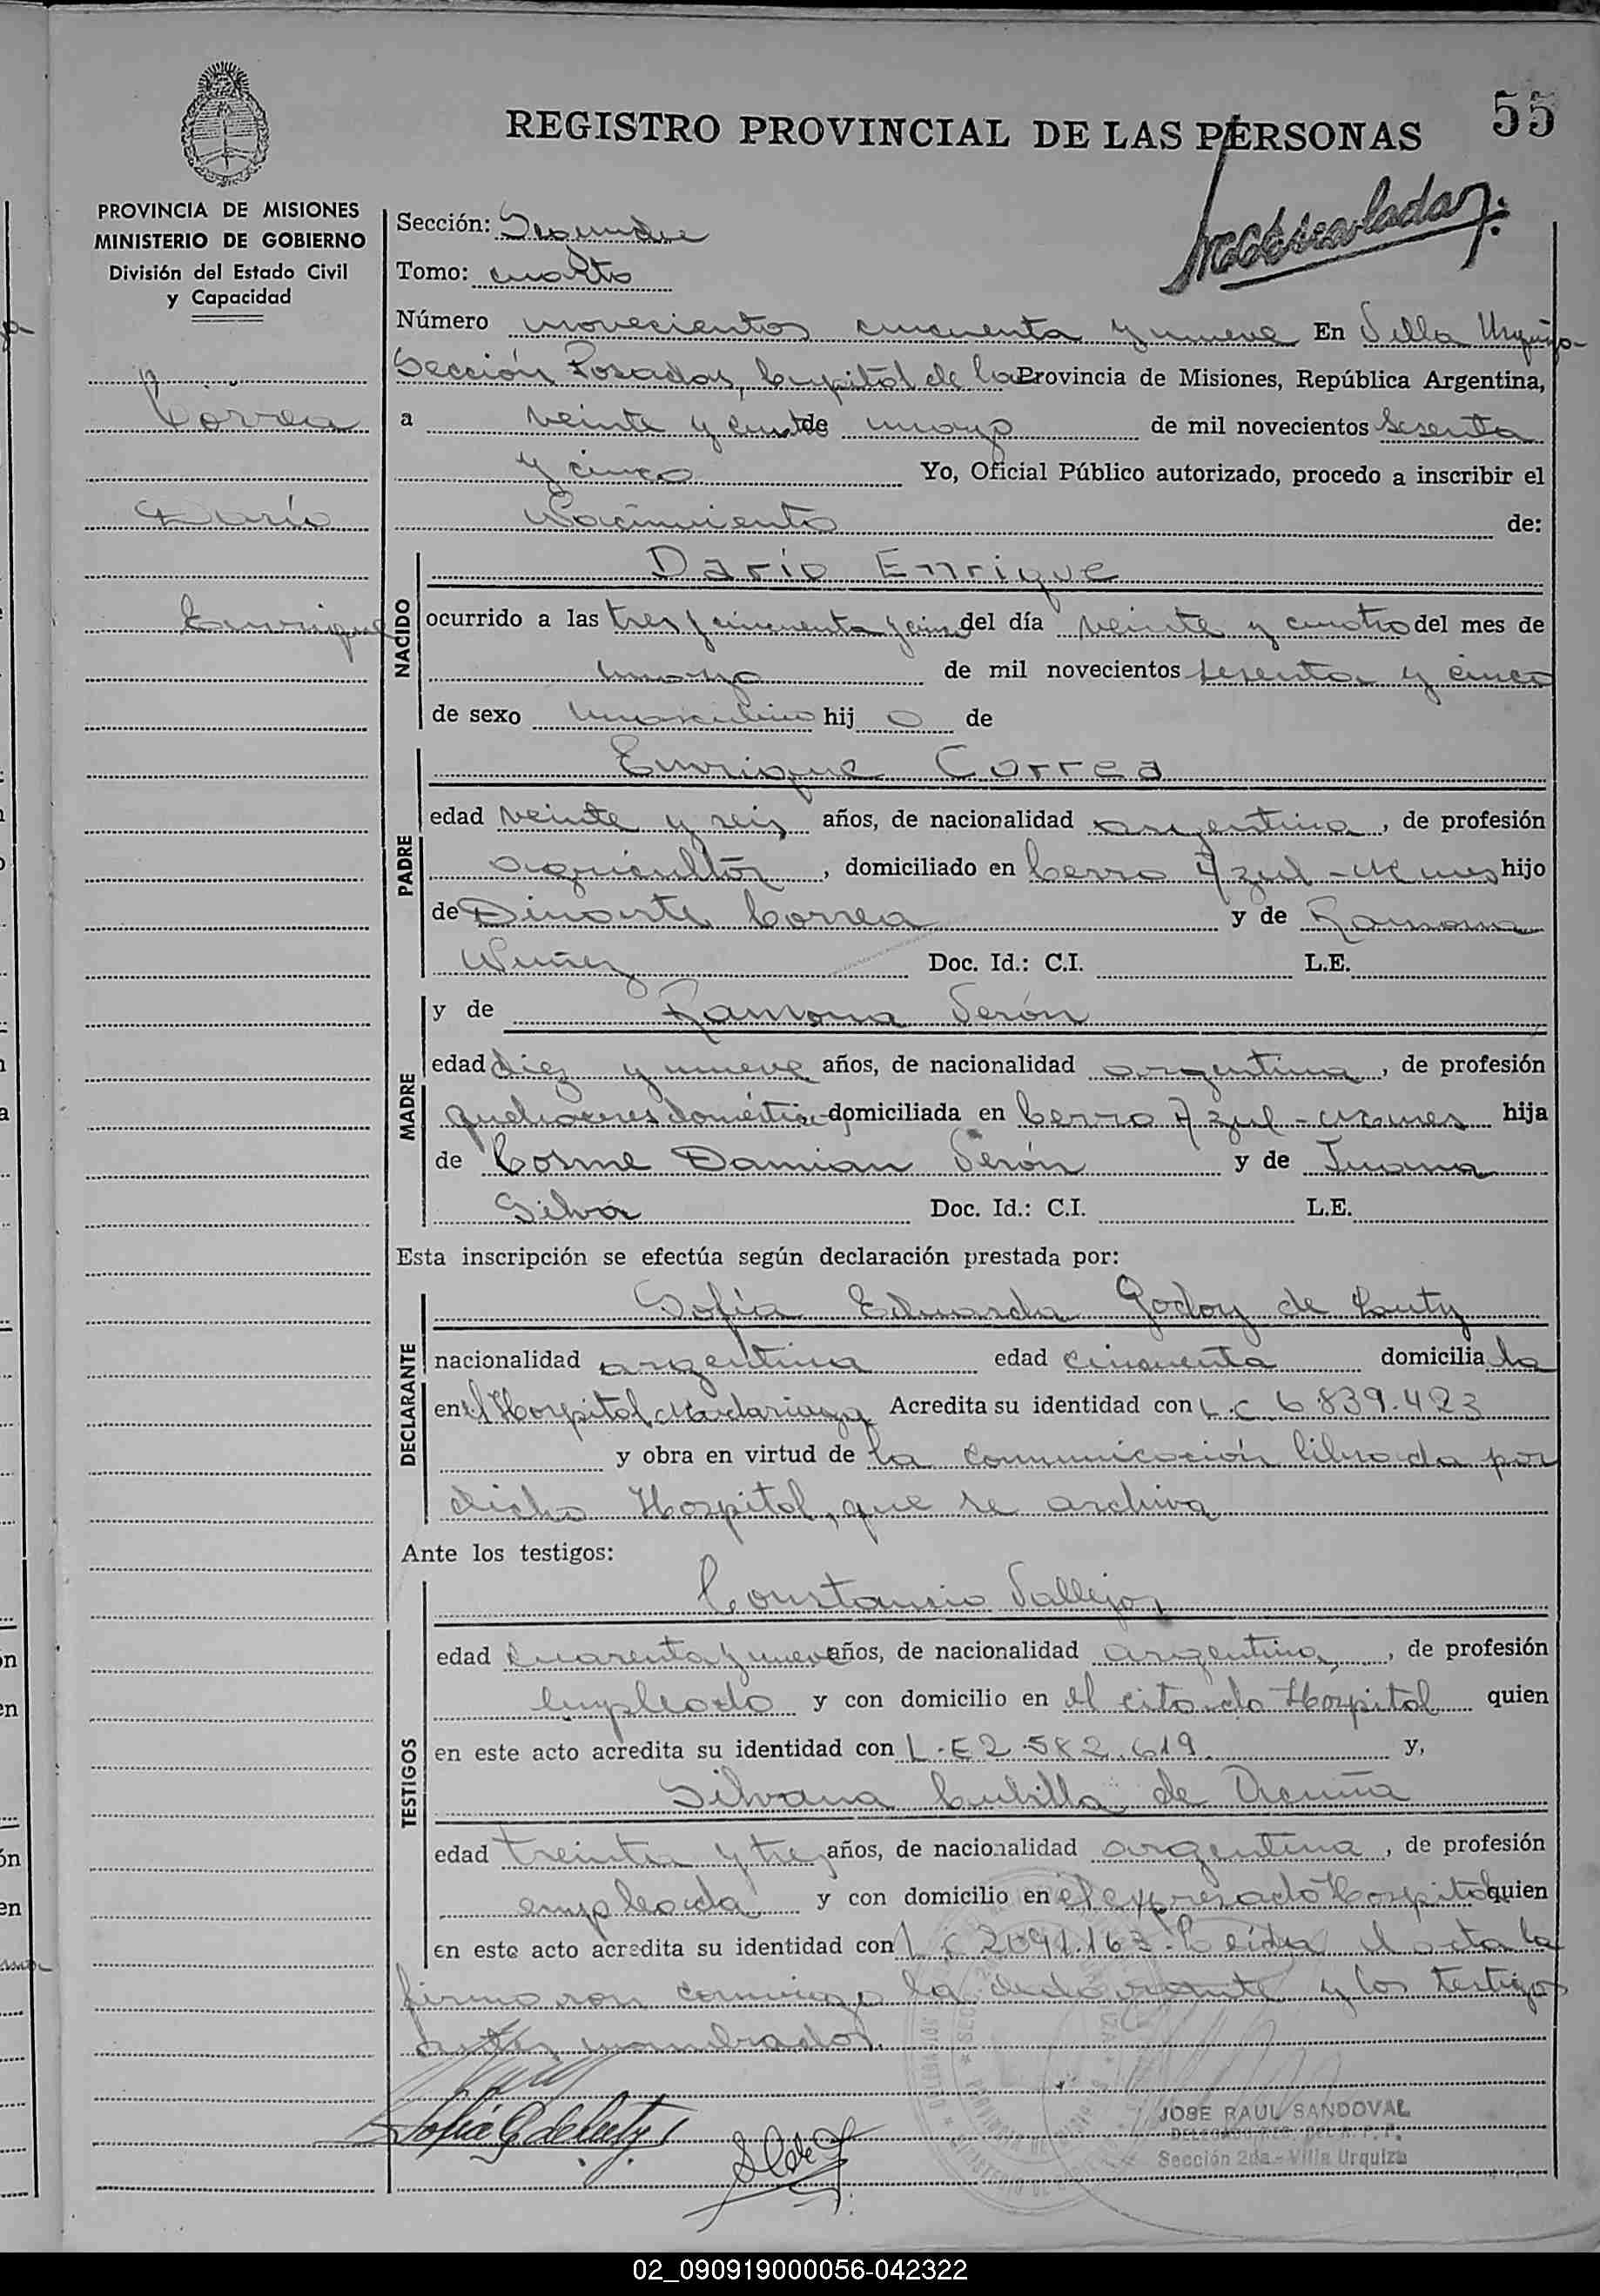 55
REGISTRO PROVINCIAL DE LAS PERSONAS
PROVINCIA DE MISIONES
MINISTERIO DE GOBIERNO
División del Estado Civil
y Capacidad
Correa
Darío
Enrique
Sección: Segunda
Tomo: cuarto
Número novecientos cincuenta y nueve En Villa Urquiza
Sección Posadas, Capital de la Provincia de Misiones, República Argentina,
a veinte y de mayo de mil novecientos sesenta
y cinco Yo, Oficial Público autorizado, procedo a inscribir el
Nacimiento de:
NACIDO
Darío Enrique
ocurrido a las tres y cincuenta y cinco del día veinte y cuatro del mes de
mayo de mil novecientos sesenta y cinco
de sexo masculino hijo de
PADRE
Enrique Correa
edad veinte y seis años, de nacionalidad argentina, de profesión
agricultor, domiciliado en Cerro Azul - Mnes hijo
de Dinarte Correa y de Ramona
Nuñez Doc. Id.: C.I. L.E.
MADRE
y de Ramona Verón
edad diez y nueve años, de nacionalidad argentina, de profesión
quehaceres domésticos domiciliada en Cerro Azul - Mnes hija
de Cosme Damian Verón y de Juana
Silva Doc. Id.: C.I. L.E.
Esta inscripción se efectúa según declaración prestada por:
DECLARANTE
Sofía Eduarda Godoy de
nacionalidad argentina edad cincuenta domiciliada
en el Hospital Madariaga Acredita su identidad con L.C 6.839.423
y obra en virtud de la comunicación librada por
dicho Hospital, que se archiva
Ante los testigos:
TESTIGOS
Constancio Vallejos
edad cuarenta y nueve años, de nacionalidad argentina, de profesión
empleado y con domicilio en el citado Hospital quien
en este acto acredita su identidad con L.E 2.582.619. y,
Silvana Cubilla de Acuña
edad treinta y tres años, de nacionalidad argentina, de profesión
empleada y con domicilio en el expresado Hospital quien
en este acto acredita su identidad con L.C 2091.163. Leída el acta la
firmaron conmigo la declarante y los testigos
antes nombrados.
JOSE RAUL SANDOVAL
Sección 2da - Villa Urquiza
02_090919000056-042322